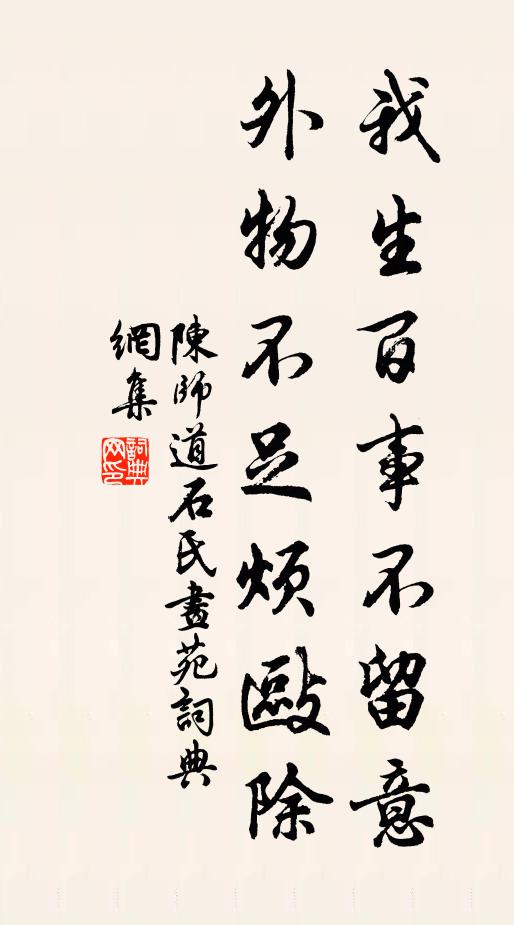 我生百事不留意
外物不足煩毆除
陳師道石氏畫苑詞典
網集
詞典網印